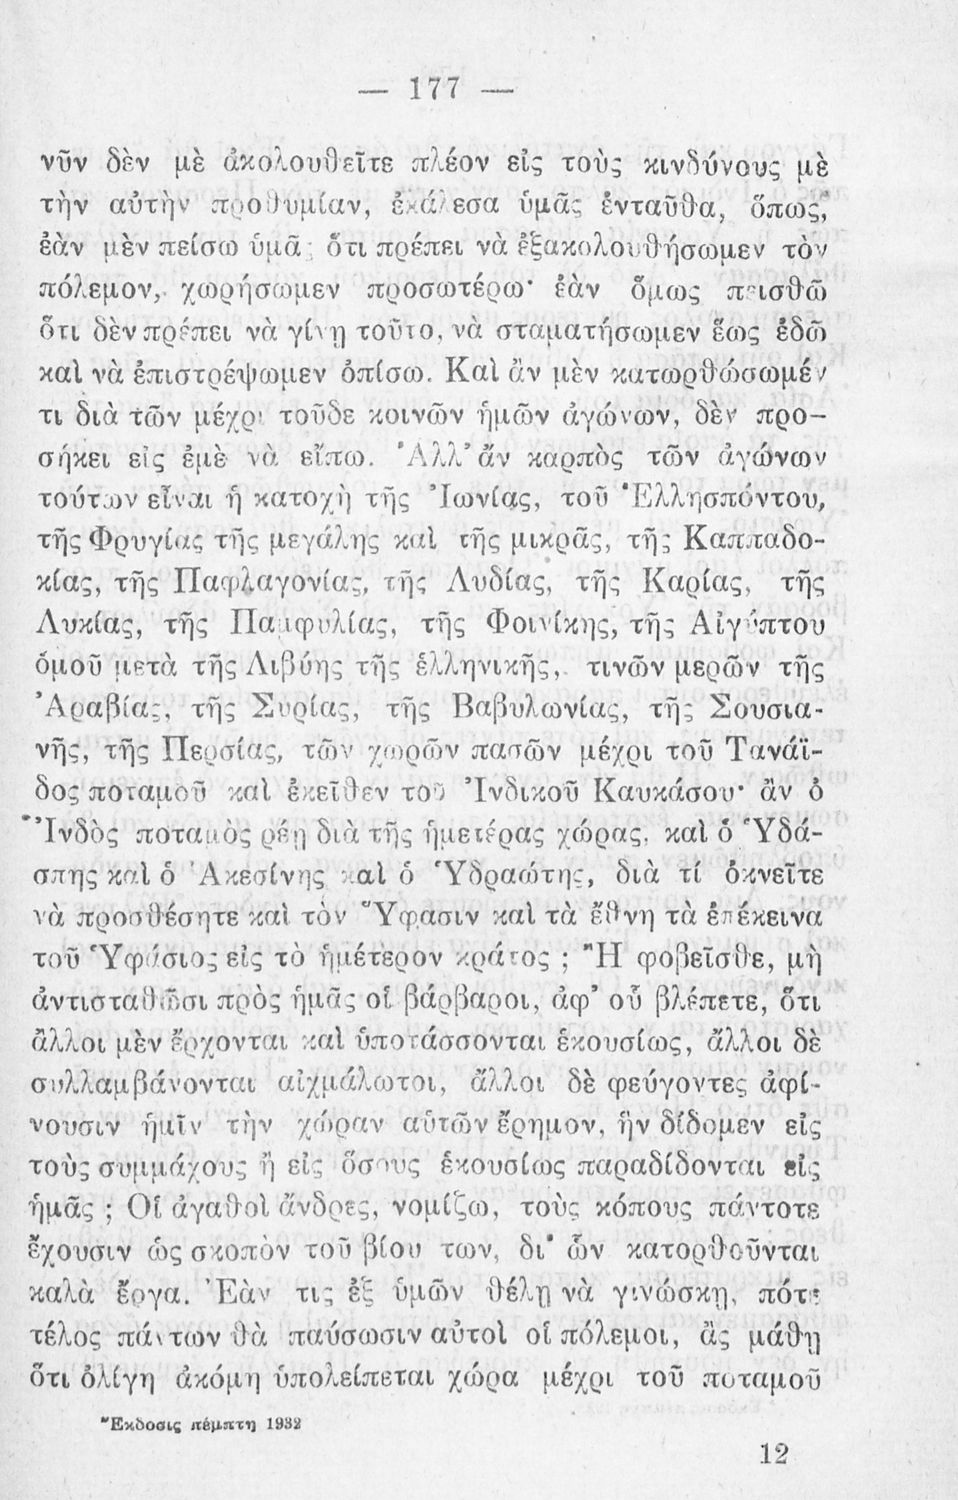 — 177 —
νῦν δὲν μὲ ἀκολουθεῖτε πλέον εἰς τοὺς κινδύνους μὲ
τὴν αὐτὴν προθυμίαν, ἐκάλεσα ὑμᾶς ἐνταῦθα, ὅπως,
ἐὰν μὲν πείσω ὑμᾶς ὅτι πρέπει νὰ ἐξακολουθήσωμεν τὸν
πόλεμον, χωρήσωμεν προσωτέρω· ἐὰν ὅμως πεισθῶ
ὅτι δὲν πρέπει νὰ γίνῃ τοῦτο, νὰ σταματήσωμεν ἕως ἐδῶ
καὶ νὰ ἐπιστρέψωμεν ὀπίσω. Καὶ ἂν μὲν κατωρθώσωμέν
τι διὰ τῶν μέχρι τοῦδε κοινῶν ἡμῶν ἀγώνων, δὲν προ-
σήκει εἰς ἐμὲ νὰ εἴπω. Ἀλλ' ἄν καρπὸς τῶν ἀγώνων
τούτων εἶναι ἡ κατοχὴ τῆς Ἰωνίας, τοῦ Ἑλλησπόντου,
τῆς Φρυγίας τῆς μεγάλης καὶ τῆς μικρᾶς, τῆς Καππαδο-
κίας, τῆς Παφλαγονίας, τῆς Λυδίας, τῆς Καρίας, τῆς
Λυκίας, τῆς Παμφυλίας, τῆς Φοινίκης, τῆς Αἰγύπτου
ὁμοῦ μετὰ τῆς Λιβύης τῆς ἑλληνικῆς, τινῶν μερῶν τῆς
Ἀραβίας, τῆς Συρίας, τῆς Βαβυλωνίας, τῆς Σουσια-
νῆς, τῆς Περσίας, τῶν χωρῶν πασῶν μέχρι τοῦ Τανάϊ-
δος ποταμοῦ καὶ ἐκεῖθεν τοῦ Ἰνδικοῦ Καυκάσου· ἂν ὁ
Ἰνδὸς ποταμὸς ρέῃ διὰ τῆς ἡμετέρας χώρας, καὶ ὁ Ὑδά-
σπης καὶ ὁ Ἀκεσίνης καὶ ὁ Ὑδραώτης, διὰ τί ὀκνεῖτε
νὰ προσθέσητε καὶ τὸν Ὕφασιν καὶ τὰ ἔθνη τὰ ἐπέκεινα
τοῦ Ὑφάσιος εἰς τὸ ἡμέτερον κράτος ; Ἢ φοβεῖσθε, μὴ
ἀντισταθῶσι πρὸς ἡμᾶς οἱ βάρβαροι, ἀφ' οὗ βλέπετε, ὅτι
ἄλλοι μὲν ἔρχονται καὶ ὑποτάσσονται ἑκουσίως, ἄλλοι δὲ
συλλαμβάνονται αἰχμάλωτοι, ἄλλοι δὲ φεύγοντες ἀφί-
νουσιν ἡμῖν τὴν χώραν αὑτῶν ἔρημον, ἣν δίδομεν εἰς
τοὺς συμμάχους ἢ εἰς ὅσους ἑκουσίως παραδίδονται εἰς
ἡμᾶς ; Οἱ ἀγαθοὶ ἄνδρες, νομίζω, τοὺς κόπους πάντοτε
ἔχουσιν ὡς σκοπὸν τοῦ βίου των, δι' ὧν κατορθοῦνται
καλὰ ἔργα. Ἐὰν τις ἐξ ὑμῶν θέλῃ νὰ γινώσκῃ, πότε
τέλος πάντων θὰ παύσωσιν αὐτοὶ οἱ πόλεμοι, ἂς μάθῃ
ὅτι ὀλίγη ἀκόμη ὑπολείπεται χώρα μέχρι τοῦ ποταμοῦ
Ἔκδοσις πέμπτη 1932
12